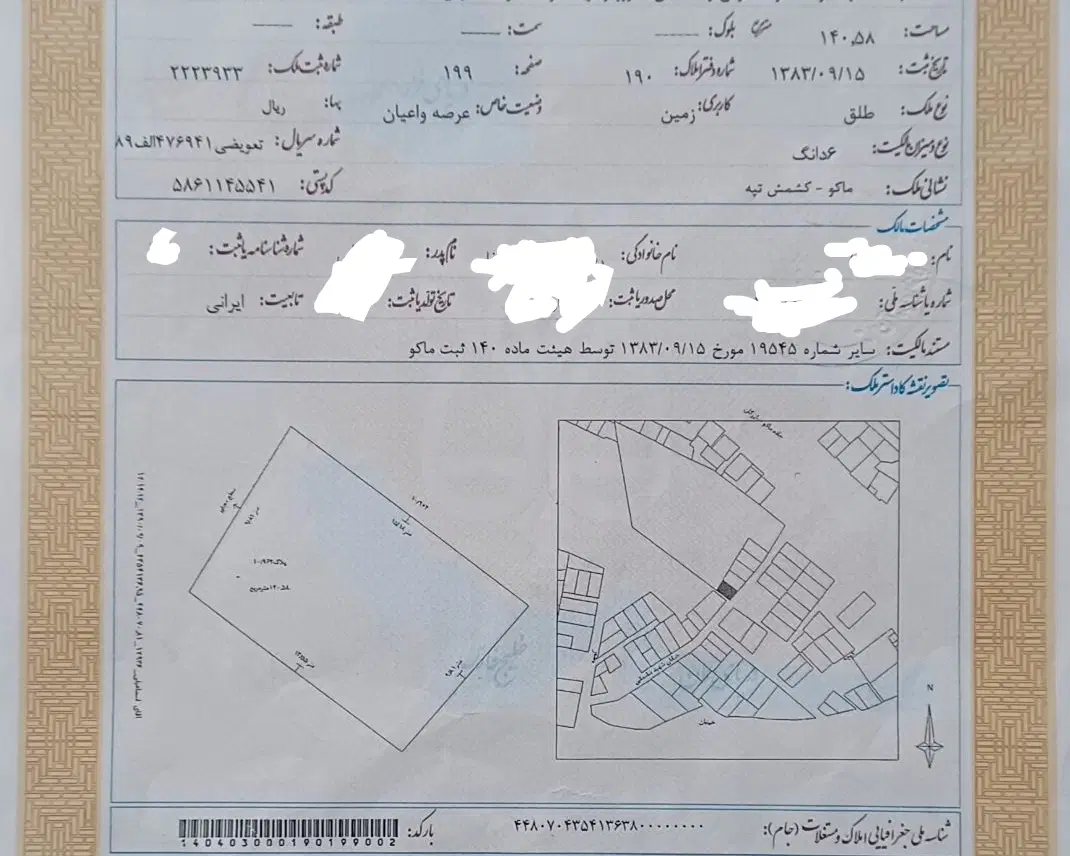 مساحت: ۱۴۰٫۵۸ بلوک: ــــــ سمت: ــــــ طبقه: ــــــ
تاریخ ثبت: ۱۳۸۳/۰۹/۱۵ شماره دفتر املاک: ۱۹۰ صفحه: ۱۹۹ شماره ثبت ملک: ۲۲۲۳۹۳۳
نوع ملک: طلق کاربری: زمین وضعیت خاص: عرصه واعیان بها: ریال
نوع ومیزان مالکیت: ۶دانگ شماره سریال: تعویضی ۴۷۶۹۴۱الف۸۹
نشانی ملک: ماکو - کشمش تپه کدپستی: ۵۸۶۱۱۴۵۵۴۱
مشخصات مالک
نام: نام خانوادگی: نام پدر: شماره شناسنامه یا ثبت:
شماره یا شناسه ملی: محل صدور یا ثبت: تاریخ تولد یا ثبت: تابعیت: ایرانی
مستند مالکیت: سایر شماره ۱۹۵۴۵ مورخ ۱۳۸۳/۰۹/۱۵ توسط هیئت ماده ۱۴۰ ثبت ماکو
تصویر نقشه کاداستر ملک:
N
خیابان
شناسه ملی جغرافیایی املاک و مستغلات (جام): ۴۴۸۰۷۰۴۳۵۴۱۳۶۳۸۰۰۰۰۰۰۰۰ بارکد:
140403000190199002